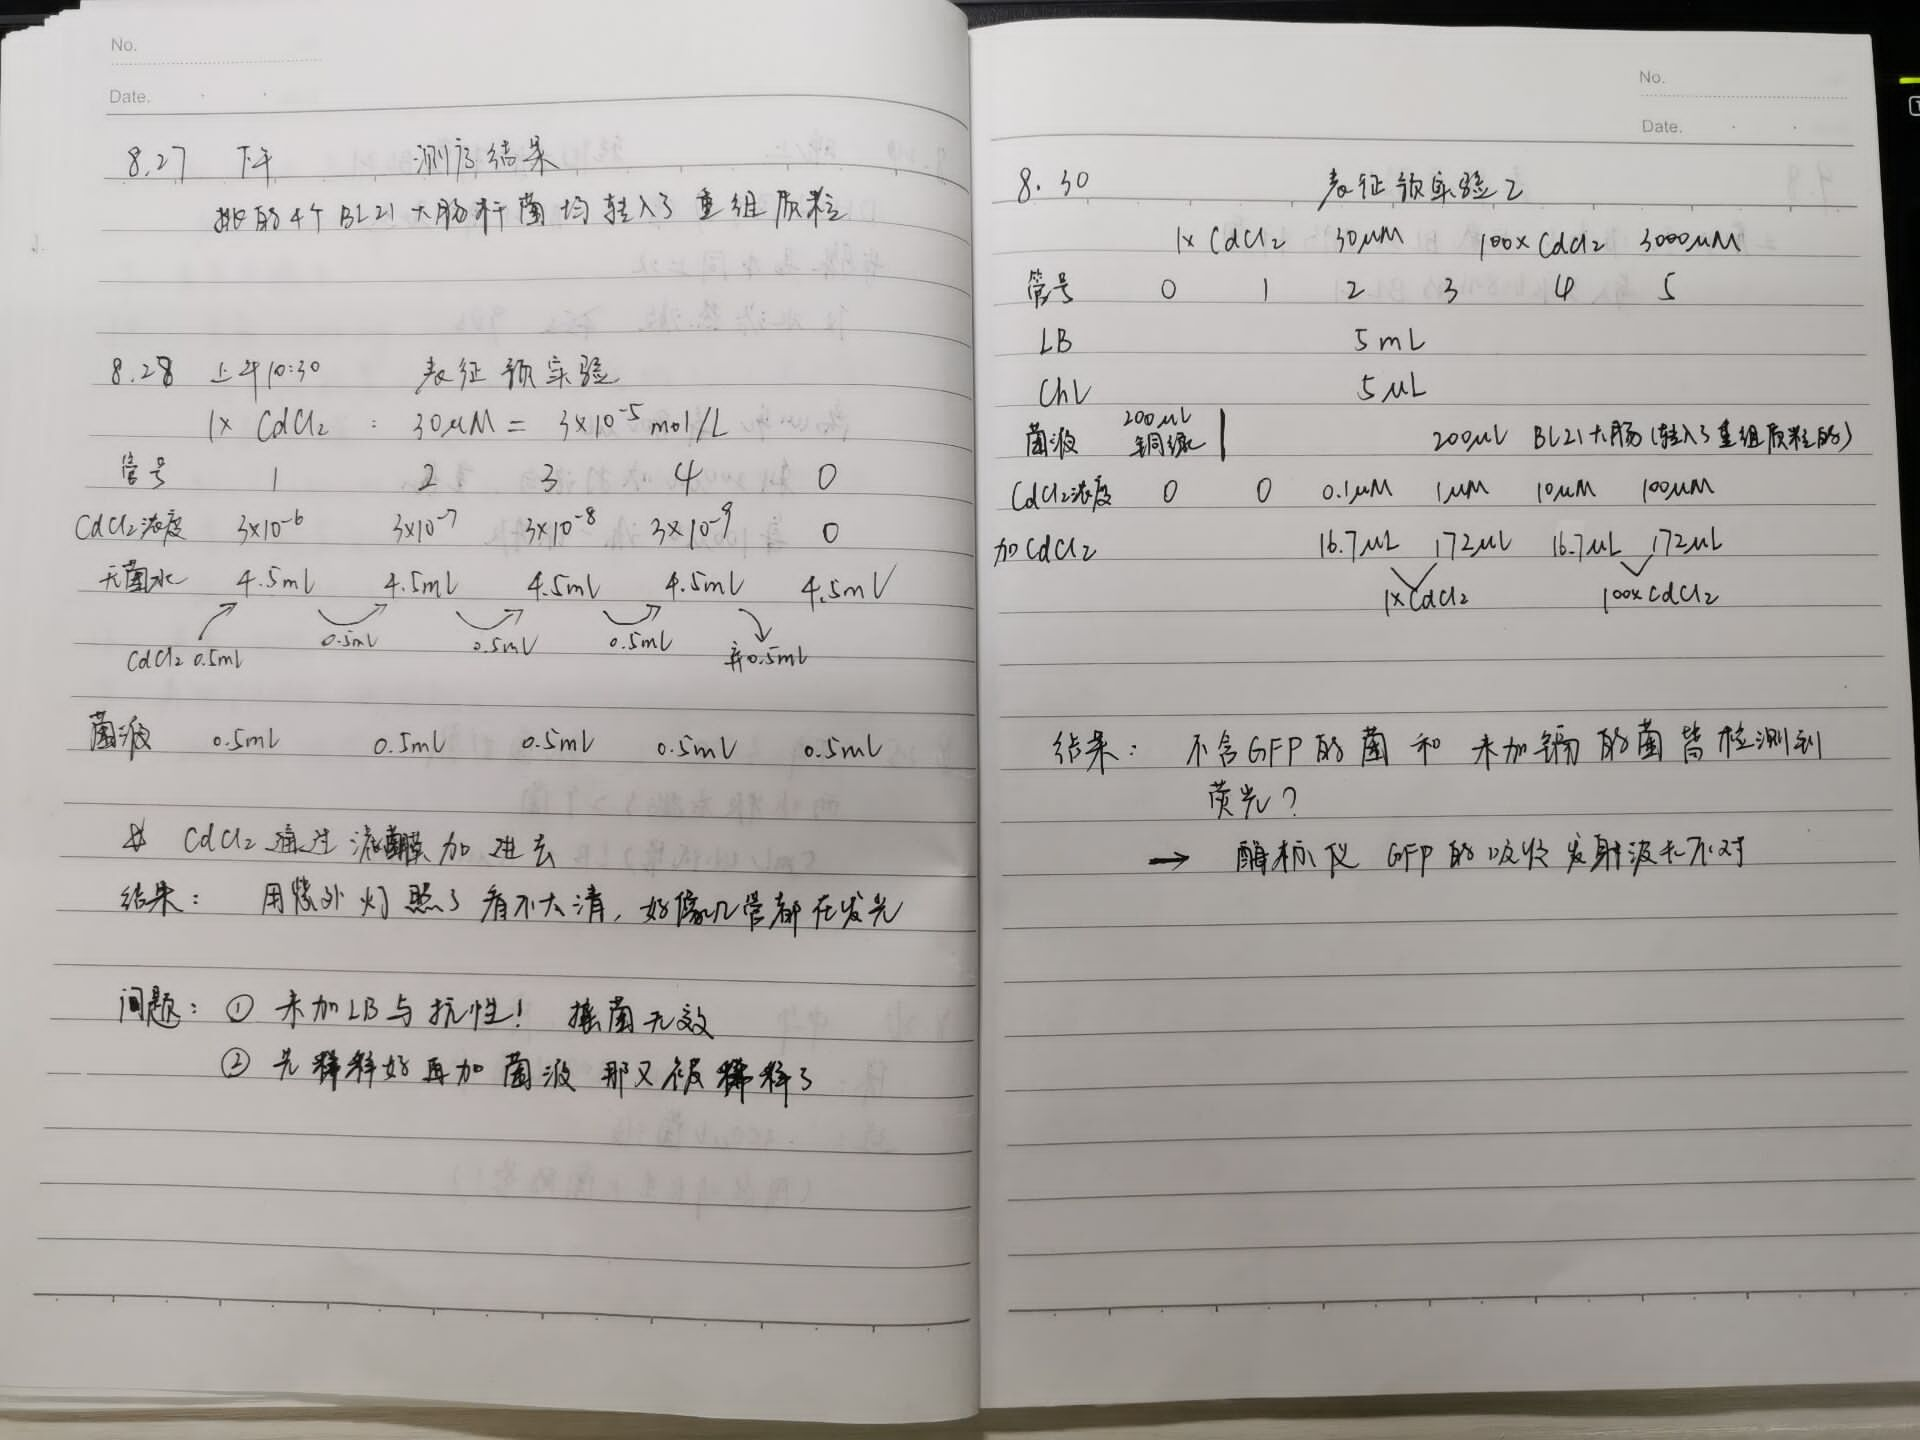 No.
Date.
8.27 下午 测序结果
挑的4个BL21大肠杆菌均转入了重组质粒
8.28 上午10:30 表征预实验
1× CdCl2 : 30μM = 3×10-5 mol/L
管号 1 2 3 4 0
CdCl2浓度 3×10-6 3×10-7 3×10-8 3×10-9 0
无菌水 4.5ml 4.5ml 4.5ml 4.5ml 4.5ml
CdCl2 0.5ml 0.5ml 0.5ml 0.5ml 弃0.5ml
菌液 0.5ml 0.5ml 0.5ml 0.5ml 0.5ml
CdCl2通过滤膜加进去
结果: 用紫外灯照了看不太清,好像几管都在发光
问题: ① 未加LB与抗性! 摇菌无效
② 先稀释好再加菌液 那又被稀释了
No.
Date.
8.30 表征预实验2
1× CdCl2 30μM 100× CdCl2 3000μM
管号 0 1 2 3 4 5
LB 5mL
Chl 5μL
菌液 200μL 铜绿 200μL BL21大肠(转入了重组质粒的)
CdCl2浓度 0 0 0.1μM 1μM 10μM 100μM
加CdCl2 16.7μL 172μL 16.7μL 172μL
1×CdCl2 100×CdCl2
结果: 不含GFP的菌和未加镉的菌皆检测到
荧光?
→ 酶标仪 GFP的吸收发射波长不对